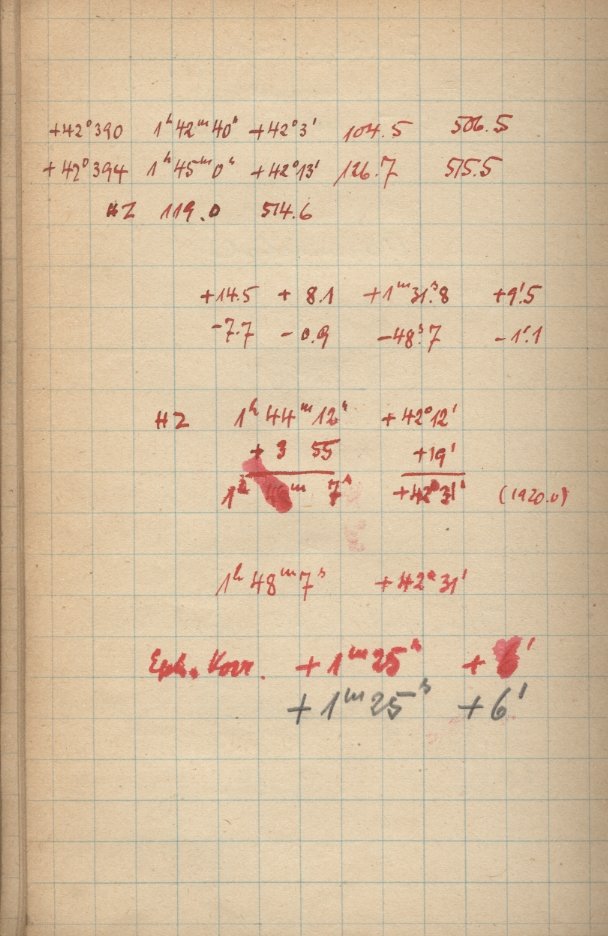 +42°390 1ʰ42ᵐ40ˢ +42°3' 104.5 506.5
+42°394 1ʰ45ᵐ0ˢ +42°13' 126.7 515.5
HZ 119.0 514.6
+14.5 + 8.1 +1ᵐ31ˢ.8 +9'.5
-7.7 -0.9 -48ˢ.7 -1'.1
HZ 1ʰ44ᵐ12ˢ +42°12'
+ 3 55 +19'
1ʰ 48ᵐ 7ˢ +42°31' (1920.0)
1ʰ48ᵐ7ˢ +42°31'
Eph. Korr. +1ᵐ25ˢ + 6'
+1ᵐ25ˢ +6'